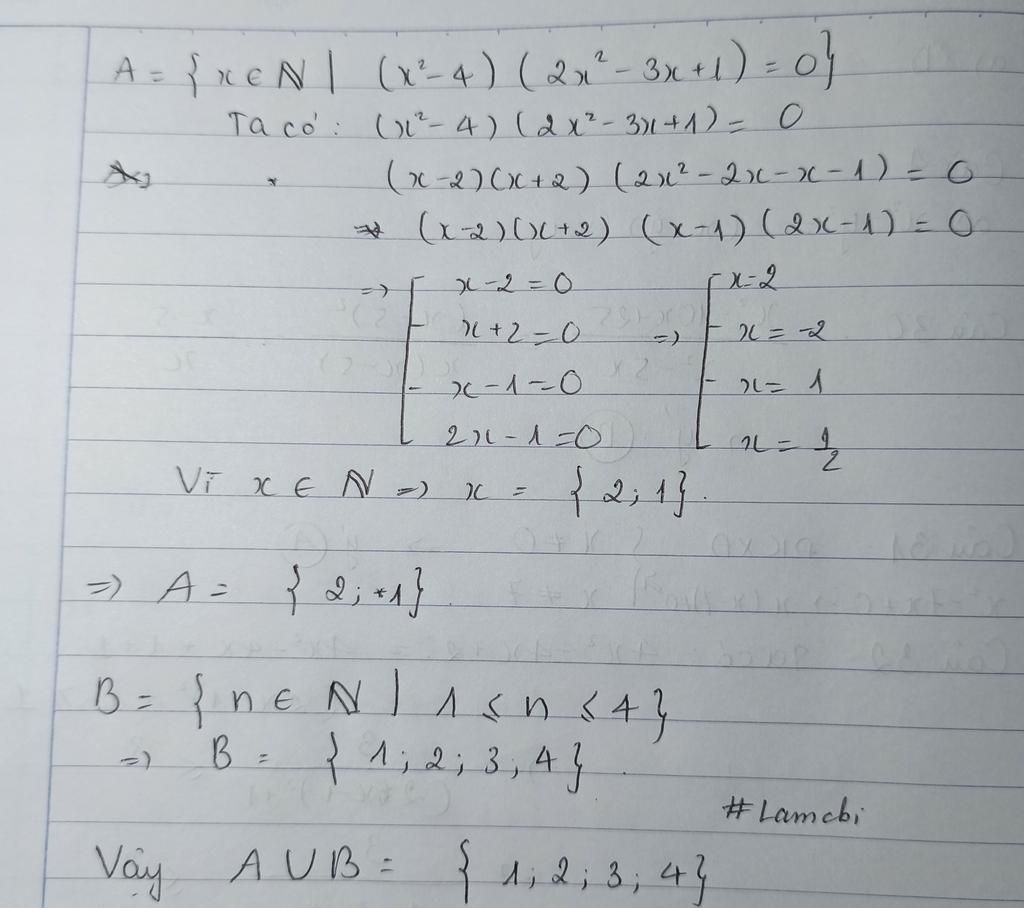 A = { x ∈ ℕ | (x² - 4) (2x² - 3x + 1) = 0}
Ta có: (x² - 4) (2x² - 3x + 1) = 0
(x - 2)(x + 2) (2x² - 2x - x - 1) = 0
=> (x - 2)(x + 2) (x - 1)(2x - 1) = 0
=> [ x - 2 = 0 [ x = 2
x + 2 = 0 => x = -2
x - 1 = 0 x = 1
2x - 1 = 0 x = 1/2
Vì x ∈ ℕ => x = { 2; 1}.
=> A = { 2; 1}.
B = { n ∈ ℕ | 1 ≤ n ≤ 4}
=> B = { 1; 2; 3; 4}.
#Lamchi
Vậy A ∪ B = { 1; 2; 3; 4}